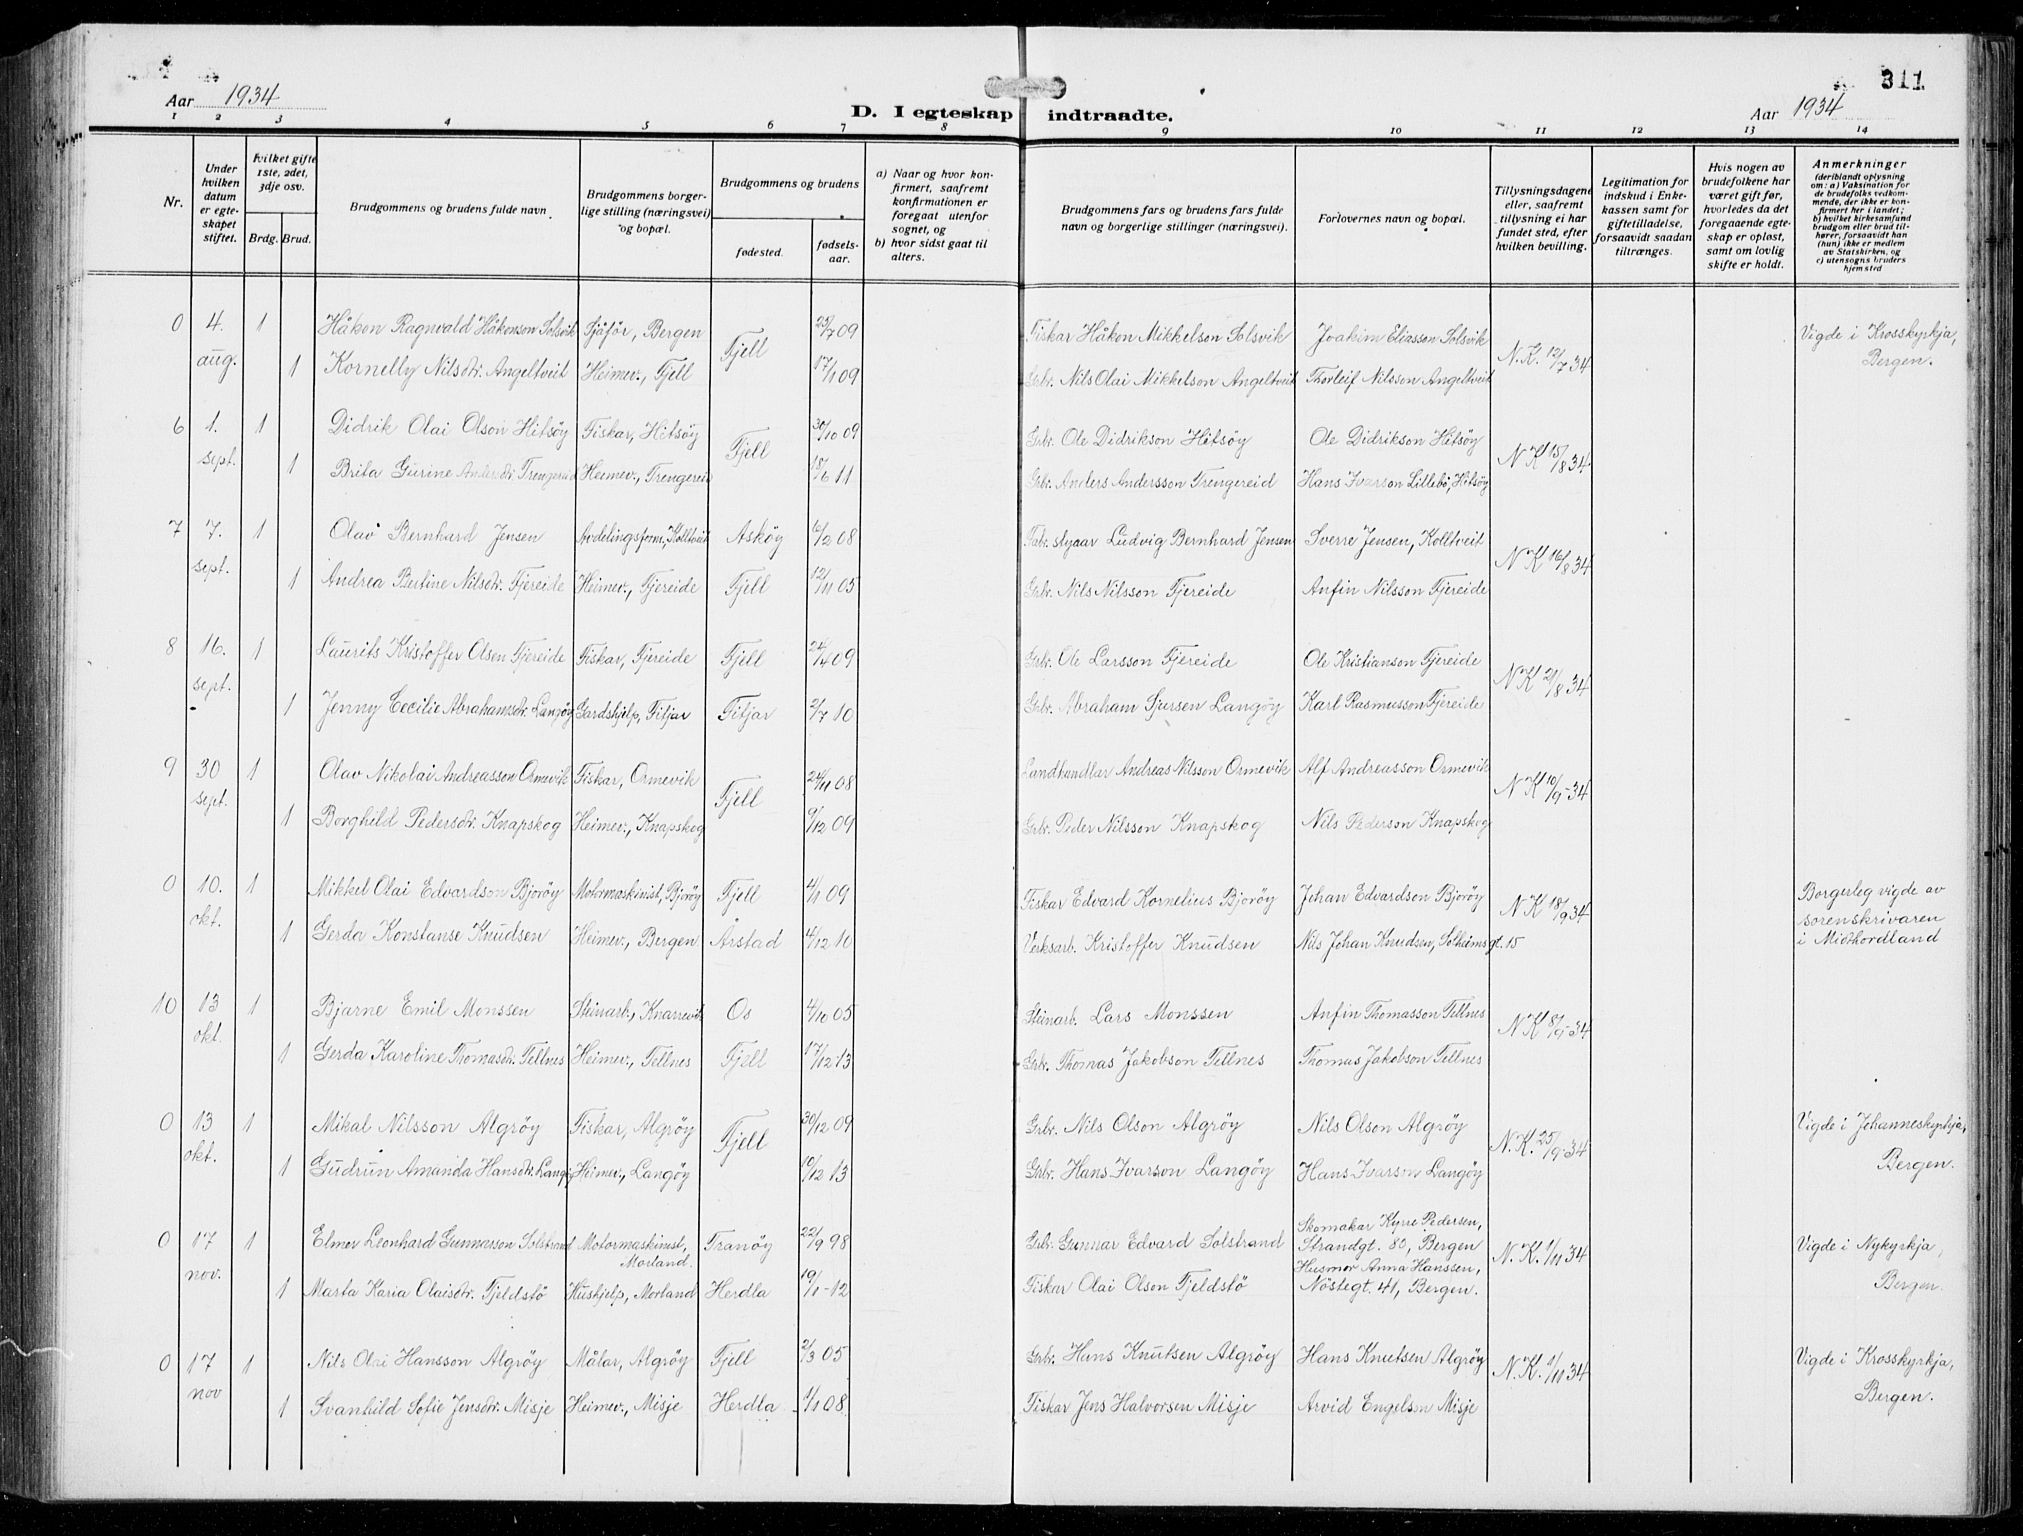 Aar 1934
D. I egteskap indtraadte.
Aar 1934
311
1 2 3 4 5 6 7 8 9 10 11 12 13 14
Nr.
Under hvilken datum er egteskapet stiftet.
Hvilket gifte 1ste, 2det, 3dje osv.
Brdg. Brud.
Brudgommens og brudens fulde navn
Brudgommens borgerlige stilling (næringsvei) og bopæl.
Brudgommens og brudens
fødested.
fødselsaar.
a) Naar og hvor konfirmert, saafremt konfirmationen er foregaat utenfor sognet, og
b) hvor sidst gaat til alters.
Brudgommens fars og brudens fars fulde navn og borgerlige stillinger (næringsvei).
Forlovernes navn og bopæl.
Tillysningsdagene eller, saafremt tillysning ei har fundet sted, efter hvilken bevilling.
Legitimation for indskud i Enkekassen samt for giftetilladelse, forsaavidt saadan tiltrænges.
Hvis nogen av brudefolkene har været gift før, hvorledes da det foregaaende egteskap er opløst, samt om lovlig skifte er holdt.
Anmerkninger (deriblandt oplysning om: a) Vaksination for de brudefolks vedkommende, der ikke er konfirmert her i landet; b) hvilket kirkesamfund brudgom eller brud tilhører, forsaavidt han (hun) ikke er medlem av Statskirken, og c) utensogns bruders hjemsted
0 4. 1 Håkon Ragnvald Håkonson Solsvik Sjåfør, Bergen Fjell 25/7 09 Fiskar Håkon Mikkelson Solsvik Joakim Eliasson Solsvik N.K. 12/7 34 Vigde i Krosskyrkja,
aug. 1 Kornelly Nilsdtr. Angeltveit Heimev., Fjell 17/1 09 Grbr. Nils Olai Mikkelson Angeltveit Thorleif Nilsson Angeltveit Bergen.
6 1. 1 Didrik Olai Olson Hitsøy Fiskar, Hitsøy Fjell 30/10 09 Grbr. Ole Didrikson Hitsøy Ole Didrikson Hitsøy N K 15/8 34
sept. 1 Brita Gurine Andersdtr. Trengereid Heimev., Trengereid 18/6 11 Grbr. Anders Andersson Trengereid Hans Ivarson Lillebö, Hitsøy
7 7. 1 Olav Bernhard Jensen Avdelingsform, Kolltveit Askøy 6/2 08 Fabr.styaar Ludvig Bernhard Jensen Sverre Jensen, Kolltveit N K 16/8 34
sept. 1 Andrea Bertine Nilsdtr. Fjereide Heimev., Fjereide Fjell 12/11 05 Grbr. Nils Nilsson Fjereide Anfin Nilsson Fjereide
8 16. 1 Laurits Kristoffer Olsen Fjereide Fiskar, Fjereide Fjell 24/4 09 Grbr. Ole Larsson Fjereide Ole Kristianson Fjereide N K 21/8 34
sept. 1 Jenny Cecilie Abrahamsdtr. Langøy Gardshjelp, Fitjar Fitjar 2/7 10 Grbr. Abraham Sjursen Langøy Karl Rasmusson Fjereide
9 30 1 Olav Nikolai Andreasson Ormevik Fiskar, Ormevik Fjell 24/11 08 Landhandlar Andreas Nilsson Ormevik Alf Andreasson Ormevik N K 10/9-34
sept. 1 Borghild Pedersdtr. Knapskog Heimev., Knapskog 9/12 09 Grbr. Peder Nilsson Knapskog Nils Pederson Knapskog
0 10. 1 Mikkel Olai Edvardson Bjorøy Motormaskinist, Bjorøy Fjell 4/1 09 Fiskar Edvard Kornelius Bjorøy Johan Edvardson Bjorøy N K 18/9 34 Borgerleg vigde av
okt. 1 Gerda Konstanse Knudsen Heimev., Bergen Årstad 4/12 10 Verksarb. Kristoffer Knudsen Nils Johan Knudsen, Solheimsgt. 15 sorenskrivaren
i Midhordland
10 13 1 Bjarne Emil Monssen Steinarb., Knarrevik Os 4/10 05 Steinarb. Lars Monssen Anfin Thomasson Tellnes N K 8/9-34
okt. 1 Gerda Karoline Thomasdtr. Tellnes Heimev., Tellnes Fjell 17/12 13 Grbr. Thomas Jakobson Tellnes Thomas Jakobson Tellnes
0 13 1 Mikal Nilsson Algrøy Fiskar, Algrøy Fjell 30/12 09 Grbr. Nils Olson Algrøy Nils Olson Algrøy N.K. 25/9-34 Vigde i Johanneskyrkja,
okt. 1 Gudrun Amanda Hansdtr. Langøy Heimev., Langøy 10/12 13 Grbr. Hans Ivarson Langøy Hans Ivarson Langøy Bergen.
0 17 1 Elmer Leonhard Gunnarson Solstrand Motormaskinist, Morland. Tranøy 22/9 98 Grbr. Gunnar Edvard Solstrand Skomakar Kyrre Pedersen, Strandgt. 80, Bergen N.K. 1/11 34 Vigde i Nykyrkja,
nov. 1 Marta Karia Olaisdtr. Fjeldstø Hushjelp, Morland Herdla 19/1-12 Fiskar Olai Olson Fjeldstø Husmor Anna Hanssen, Nöstegt. 41, Bergen. Bergen.
0 17 1 Nils Olai Hansson Algrøy Målar, Algrøy Fjell 2/3 05 Grbr. Hans Knutsen Algrøy Hans Knutsen Algrøy N.K. 1/11 34 Vigde i Krosskyrkja,
nov 1 Svanhild Sofie Jensdtr. Misje Heimev., Misje Herdla. 1/1 08 Fiskar Jens Halvorsen Misje Arvid Engelson Misje Bergen.